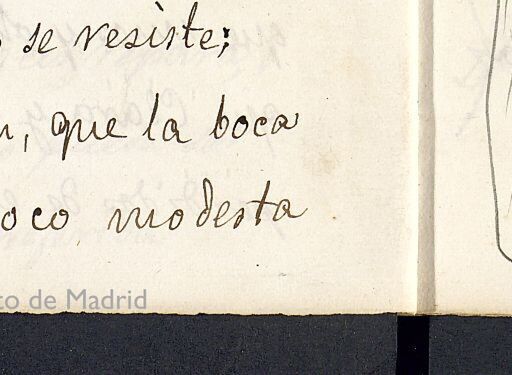 se resiste;
, que la boca
oco modesta
to de Madrid